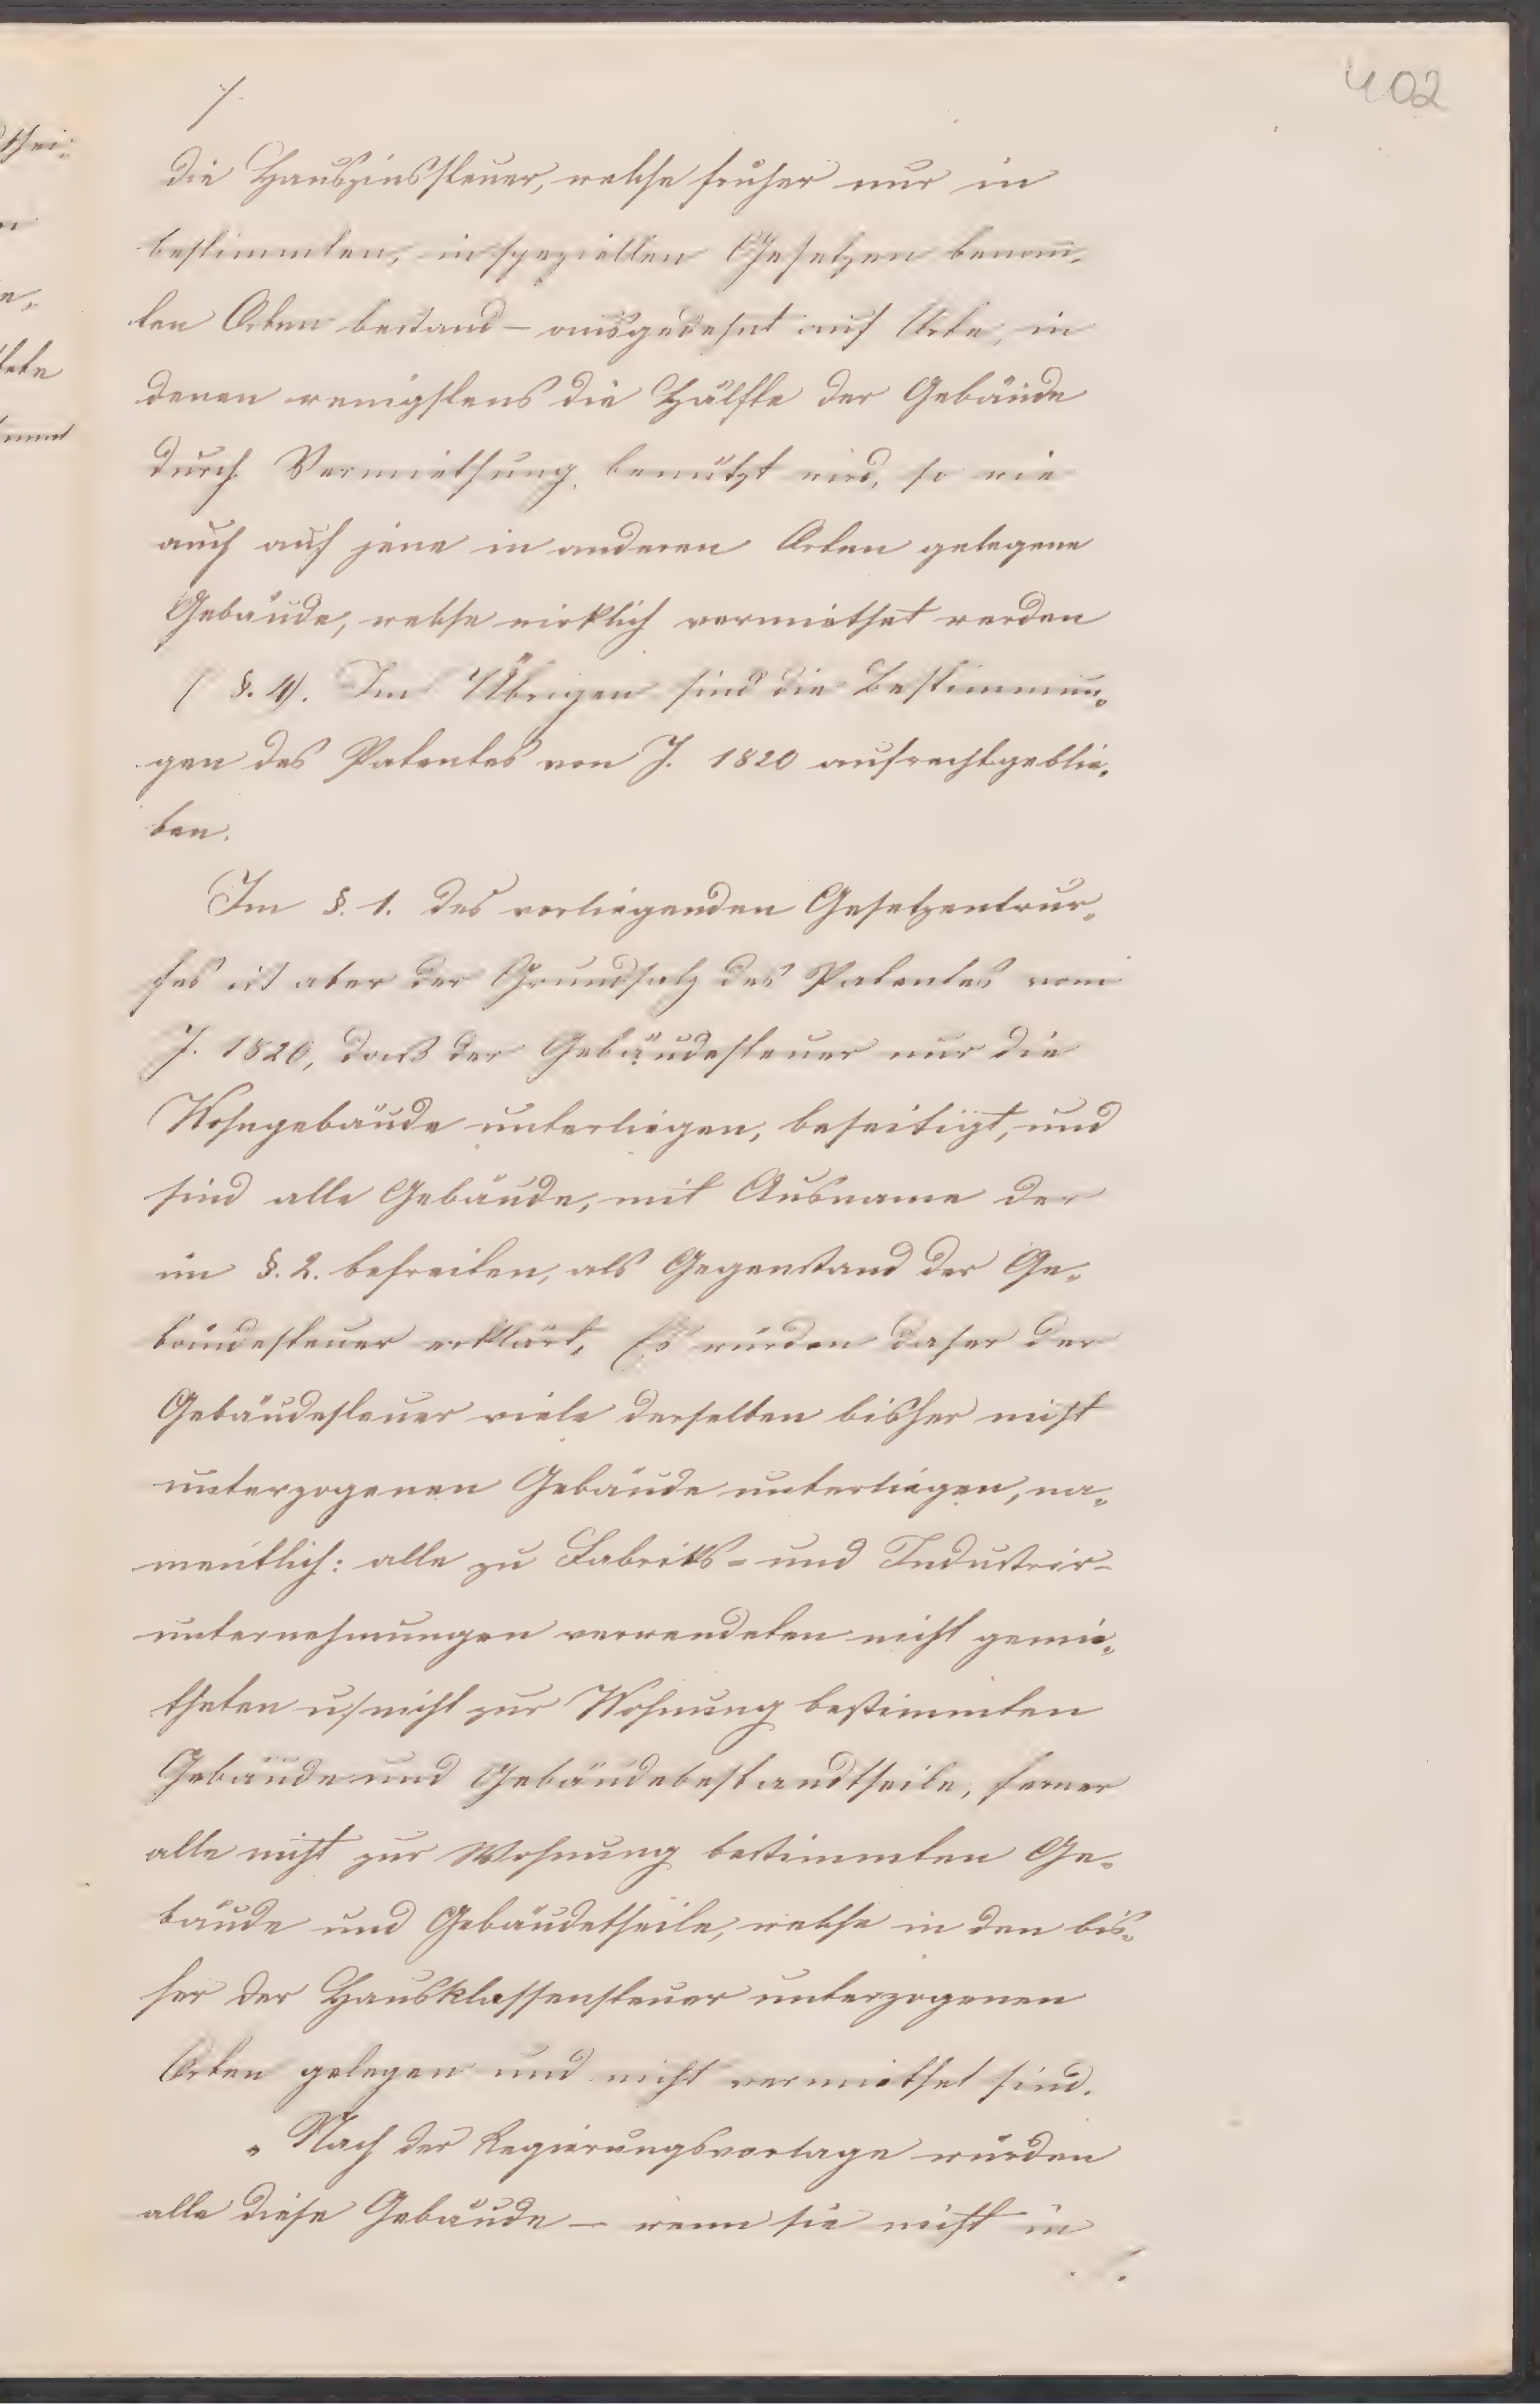 402
./.
die Hauszinssteuer, welche früher nur in
bestimmten, in speziellen Gesetzen benann-
ten Orten bestand – ausgedehnt auf Orte, in
denen wenigstens die Hälfte der Gebäude
durch Vermiethung benützt wird, so wie
auch auf jene in anderen Orten gelegene
Gebäude, welche wirklich vermiethet werden
( §. 4). Im Übrigen sind die Bestimmun-
gen des Patentes von J. 1820 aufrechtgeblie-
ben.
Im §. 1. des vorliegenden Gesetzentwur-
fes ist aber der Grundsatz des Patentes vom
J. 1820, daß der Gebäudesteuer nur die
Wohngebäude unterliegen, beseitigt, und
sind alle Gebäude, mit Ausname der
im §. 2. befreiten, als Gegenstand der Ge-
bäudesteuer erklärt. Es würden daher der
Gebäudesteuer viele derselben bisher nicht
unterzogenen Gebäude unterliegen, na-
mentlich: alle zu Fabriks- und Industrie-
unternehmungen verwendeten nicht gemie-
theten u/ nicht zur Wohnung bestimmten
Gebäude und Gebäudebestandtheile, ferner
alle nicht zur Wohnung bestimmten Ge-
bäude und Gebäudetheile, welche in den bis-
her der Hausklassensteuer unterzogenen
Orten gelegen und nicht vermiethet sind.
„Nach der Regierungsvorlage würden
alle diese Gebäude – wenn sie nicht in
./.